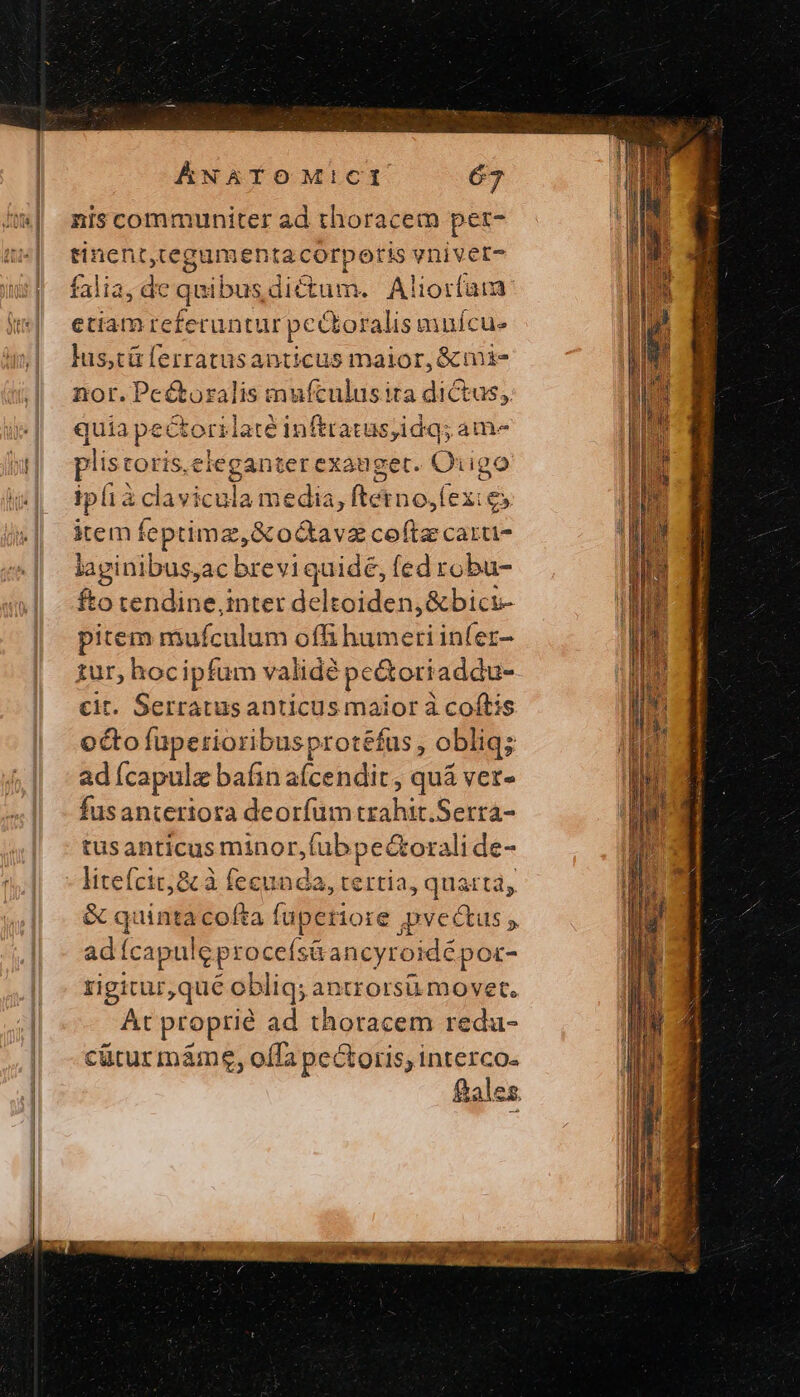 ANATOMICI 67
nis communiter ad thoracem per-
tinent,tegumenta corporis vniver-
ſalia, de quibus dictum. Aliorſum
etiam referuntur pectoralis muſcu-
lus,tū ſerratus anticus maior, & mi-
nor. Pectoralis muſculus ita dictus,
quia pectori latè inſtratus,idq; am-
plis toris, eleganter exauget. Origo
ipſi à clavicula media, ſterno,ſex: eɜ
item ſeptimæ,& octavæ coſtæ carti-
laginibus,ac brevi quidē, ſed robu-
ſto tendine, inter deltoiden,& bici-
pitem muſculum oſſi humeri inſer-
tur, hoc ipſum validè pectori addu-
cit. Serratus anticus maior à coſtis
octo ſuperioribus protēſus, obliq;
ad ſcapulæ baſin aſcendit, quā ver-
ſus anteriora deorſum trahit. Serra-
tus anticus minor, ſub pectorali de-
liteſcit,& à ſecunda, tertia, quarta,
& quinta coſta ſuperiore ꝓvectus,
ad ſcapulę proceſsū ancyroidē por-
rigitur,quē obliq; antrorsū movet.
At propriè ad thoracem redu-
cūtur māmę, oſſa pectoris, interco-
ſtales